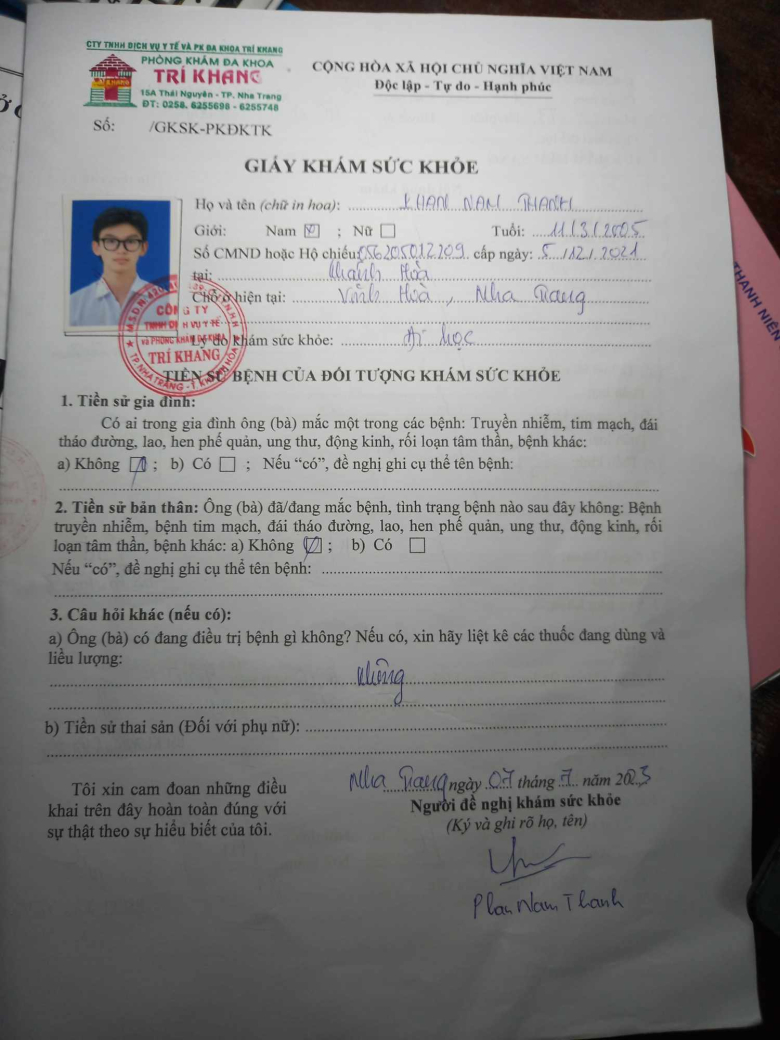 CTY TNHH DỊCH VỤ Y TẾ VÀ PK ĐA KHOA TRÍ KHANG
PHÒNG KHÁM ĐA KHOA
TRÍ KHANG
15A Thái Nguyên - TP. Nha Trang
ĐT: 0258. 6255698 - 6255748
CỘNG HÒA XÃ HỘI CHỦ NGHĨA VIỆT NAM
Độc lập - Tự do - Hạnh phúc
Số: /GKSK-PKĐKTK
GIẤY KHÁM SỨC KHỎE
Họ và tên (chữ in hoa): PHAN NAM THANH
Giới: Nam ☑ ; Nữ ☐ Tuổi: 11/3/2005
Số CMND hoặc Hộ chiếu: 056205012209 cấp ngày: 5/12/2021
tại: Khánh Hòa
Chỗ ở hiện tại: Vĩnh Hoà, Nha Trang
Lý do khám sức khỏe: Đi học
CÔNG TY
TNHH DỊCH VỤ Y TẾ
VÀ PHÒNG KHÁM ĐA KHOA
TRÍ KHANG
TP.NHA TRANG - T. KHÁNH HÒA
TIỀN SỬ BỆNH CỦA ĐỐI TƯỢNG KHÁM SỨC KHỎE
1. Tiền sử gia đình:
Có ai trong gia đình ông (bà) mắc một trong các bệnh: Truyền nhiễm, tim mạch, đái
tháo đường, lao, hen phế quản, ung thư, động kinh, rối loạn tâm thần, bệnh khác:
a) Không ☑ ; b) Có ☐ ; Nếu “có”, đề nghị ghi cụ thể tên bệnh:
2. Tiền sử bản thân: Ông (bà) đã/đang mắc bệnh, tình trạng bệnh nào sau đây không: Bệnh
truyền nhiễm, bệnh tim mạch, đái tháo đường, lao, hen phế quản, ung thư, động kinh, rối
loạn tâm thần, bệnh khác: a) Không ☑ ; b) Có ☐
Nếu “có”, đề nghị ghi cụ thể tên bệnh:
3. Câu hỏi khác (nếu có):
a) Ông (bà) có đang điều trị bệnh gì không? Nếu có, xin hãy liệt kê các thuốc đang dùng và
liều lượng:
Không
b) Tiền sử thai sản (Đối với phụ nữ):
Nha Trang ngày 07 tháng 7 năm 2023
Tôi xin cam đoan những điều
khai trên đây hoàn toàn đúng với
sự thật theo sự hiểu biết của tôi.
Người đề nghị khám sức khỏe
(Ký và ghi rõ họ, tên)
Phan Nam Thanh
THANH NIÊN